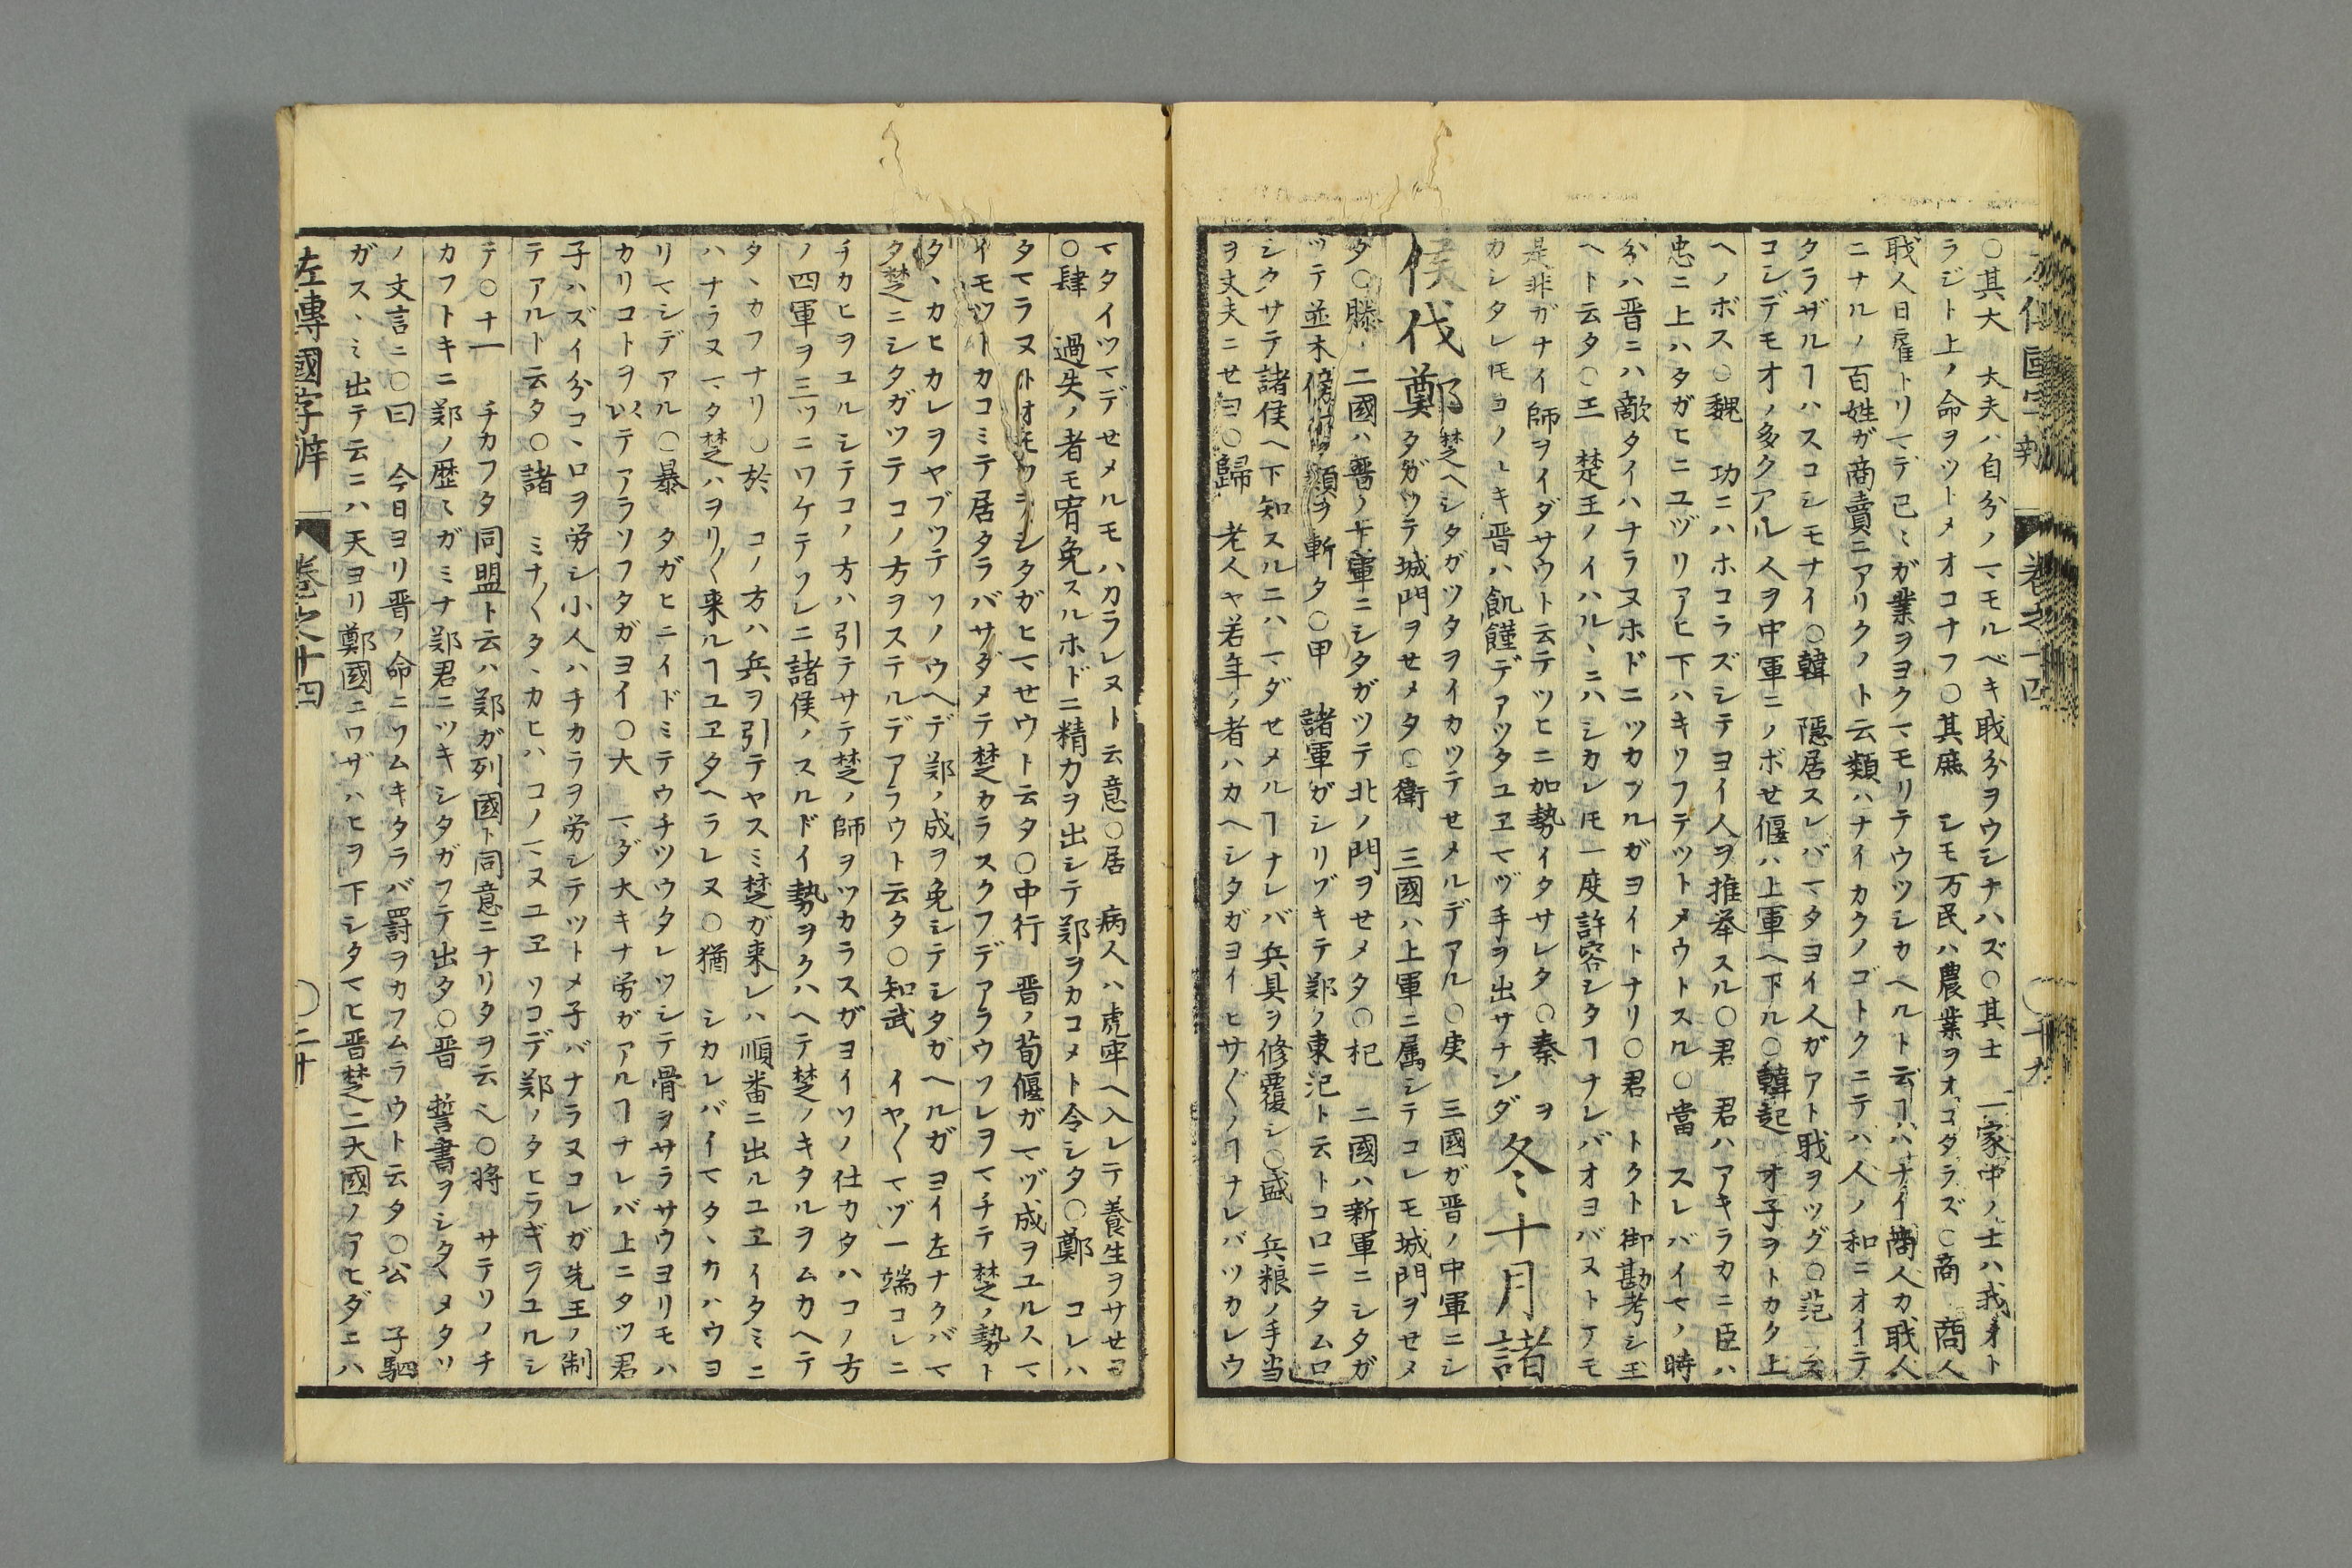 〇其大　大夫ハ自分ノマモルベキ職分ヲウシナハズ〇其士　一家中ノ士ハ我オト
ラジト上ノ命ヲツトメオコナフ〇其庶　シモ万民ハ農業ヲオコダラズ〇商　商人
職人日雇トリマデ己〻ガ業ヲヨクマモリテウツシカヘルト云ヿハナイ商人カ職人
ニナルノ百姓ガ商賣ニアリクノト云類ハナイカクノゴトクニテハ人ノ和ニオイテ
タラザルヿハスコシモナイ〇韓　隠居スレバマタヨイ人ガアト職ヲツグ〇范
コシデモオノ多クアル人ヲ中軍ニノボセ偃ハ上軍ヘ下ル〇韓起　オ子ヲトカク上
ヘノボス〇魏　功ニハホコラズシテヨイ人ヲ推挙スル〇君　君ハアキラカニ臣ハ
忠ニ上ハタガヒニユヅリアヒ下ハキソフテツトメウトスル〇當　スレバイマノ時
分ハ晋ニハ敵タイハナラヌホドニツカフルガヨイトナリ〇君　トクト御勘考シ玉
ヘト云タ〇王　楚王ノイハルヽニハシカレ𪜈一度許容シタヿナレバオヨバヌトアモ
是非ガナイ師ヲイダサウト云テツヒニ加勢イタサレタ〇秦　ヲ
カシタレ𪜈ヨノトキ晋ハ飢饉デアツタユヱマヅ手ヲ出サナンダ　冬十月諸
侯伐鄭　楚ヘシタガツタヲイカツテせメルデアル〇庚　三國ガ晋ノ中軍ニシ
タガツテ城門ヲせメタ〇衛　三國ハ上軍ニ属シテコレモ城門ヲせメ
タ〇滕　二國ハ晋ノ下軍ニシタガツテ北ノ門ヲせメタ〇杞　二國ハ新軍ニシタガ
ツテ並木ノ類ヲ斬タ〇甲　諸軍ガシリゾキテ鄭ノ東氾ト云トコロニタムロ
シタサテ諸侯ヘ下知スルニハマダせメルヿナレバ兵具ヲ修覆シ〇盛　兵粮ノ手当
ヲ丈夫ニせヨ〇歸　老人ヤ若年ノ者ハカヘシタガヨイヒサ〴〵ノヿナレバツカレウ
卷之十四
マタイツマデせメルモハカラレヌト云意〇居　病人ハ虎牢ヘ入レテ養生ヲサせヨ
〇肆　過失ノ者モ宥免スルホドニ精力ヲ出シテ鄭ヲカコメト令シタ〇鄭　コレハ
タマラヌトオモツテシタガヒマせウト云タ〇中行　晋ノ荀偃ガマヅ成ヲユルスマ
イモツトカコミテ居タラバサダメテ楚カラスクフデアラウソレヲマチテ楚ノ勢ト
タヽカヒカレヲヤブツテソノウヘデ鄭ノ成ヲ免シテシタガヘルガヨイ左ナクバマ
タ楚ニシタガツテコノ方ヲステルデアラウト云タ〇知武　イヤ〳〵マヅ一端コレニ
チカヒヲユルシテコノ方ハ引テサテ楚ノ師ヲツカラスガヨイソノ仕カタハコノ方
ノ四軍ヲ三ツニワケテソレニ諸侯ノスルドイ勢ヲクハヘテ楚ノキタルヲムカヘテ
タヽカフナリ〇於　コノ方ハ兵ヲ引テヤスミ楚ガ来レハ順番ニ出ルユヱイタミニ
ハナラヌマタ楚ハヲリ〳〵来ルヿユヱタヘラレヌ〇猶　シカレバイマタヽカハウヨ
リマシデアル〇暴　タガヒニイドミテウチツウタレツシテ骨ヲサラサウヨリモハ
カリコトヲ以テアラソフタガヨイ〇大　マダ大キナ労ガアルヿナレバ上ニタツ君
子ハズイ分コヽロヲ労シ小人ハチカラヲ労シテツトメ子バナラヌコレガ先王ノ制
テアルト云タ〇諸　ミナ〳〵タヽカヒハコノマヌユヱソコデ鄭ノタヒラギヲユルシ
テ〇十一　チカフタ同盟ト云ハ鄭ガ列國ト同意ニナリタヲ云〇将　サテソノチ
カフトキニ鄭ノ歴〻ガミナ鄭君ニツキシタガフテ出タ〇晋　誓書ヲシタヽメタソ
ノ文言ニ〇曰　今日ヨリ晋ノ命ニソムキタラバ罸ヲカフムラウト云タ〇公　子駟
ガスヽミ出テ云ニハ天ヨリ鄭國ニワザハヒヲ下シタマヒ晋楚二大國ノアヒダニハ
左傳國字辨　卷之十四　〇二十